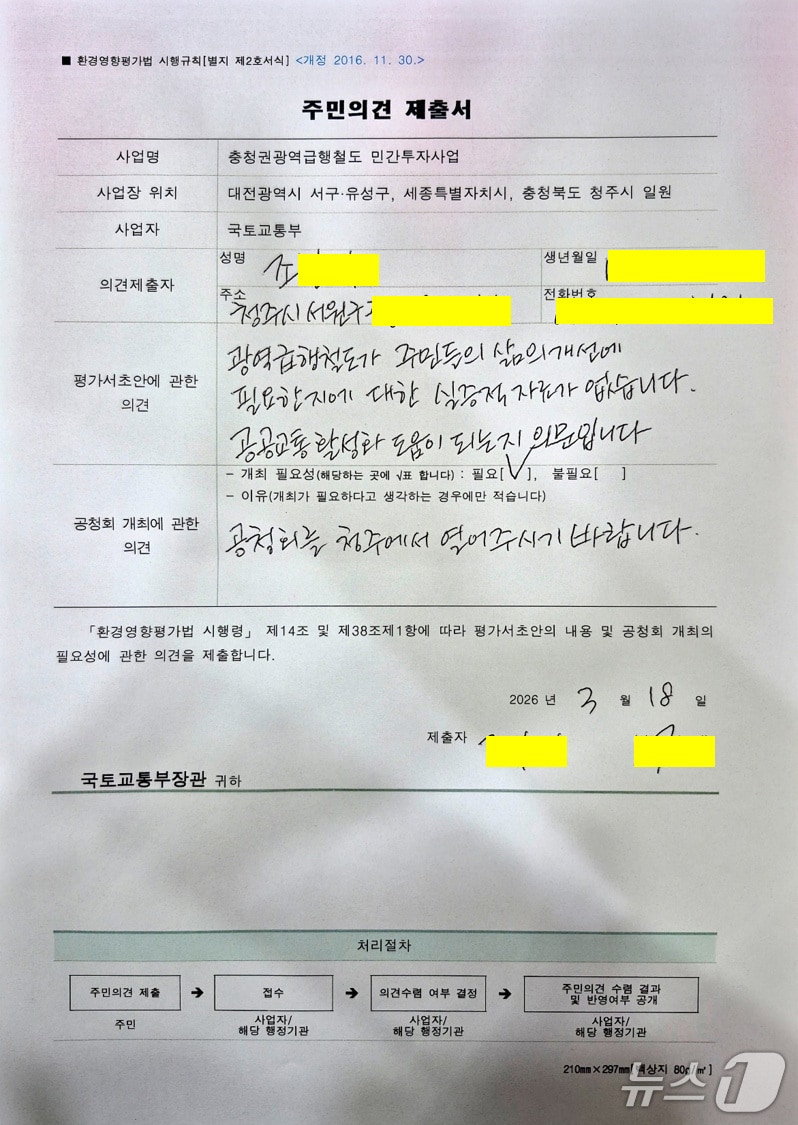 ■ 환경영향평가법 시행규칙[별지 제2호서식] <개정 2016. 11. 30.>
주민의견 제출서
사업명 충청권광역급행철도 민간투자사업
사업장 위치 대전광역시 서구·유성구, 세종특별자치시, 충청북도 청주시 일원
사업자 국토교통부
의견제출자
성명 조
생년월일
주소 청주시 서원구
전화번호
평가서초안에 관한 의견
광역급행철도가 주민들의 삶의개선에
필요한지에 대한 실증적자료가 없습니다.
공공교통활성화 도움이 되는지 의문입니다
공청회 개최에 관한 의견
- 개최 필요성(해당하는 곳에 √표 합니다) : 필요[√], 불필요[ ]
- 이유(개최가 필요하다고 생각하는 경우에만 적습니다)
공청회를 청주에서 열어주시기 바랍니다.
「환경영향평가법 시행령」 제14조 및 제38조제1항에 따라 평가서초안의 내용 및 공청회 개최의
필요성에 관한 의견을 제출합니다.
2026 년 3 월 18 일
제출자
국토교통부장관 귀하
처리절차
주민의견 제출 → 접수 → 의견수렴 여부 결정 → 주민의견 수렴 결과 및 반영여부 공개
주민 사업자/해당 행정기관 사업자/해당 행정기관 사업자/해당 행정기관
210mm×297mm[백상지 80g/㎡]
뉴스1